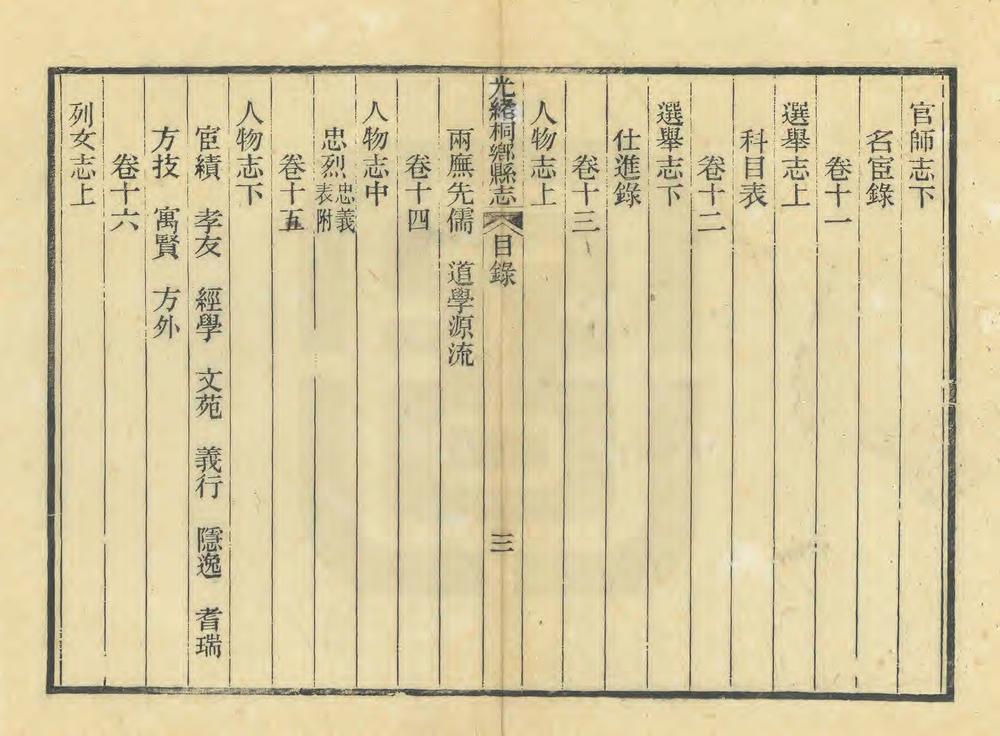 官師志下
名宦錄
卷十一
選舉志上
科目表
卷十二
選舉志下
仕進錄
卷十三
人物志上
光緒桐鄉縣志 目錄 三
兩廡先儒 道學源流
卷十四
人物志中
忠烈 忠義表附
卷十五
人物志下
宦績 孝友 經學 文苑 義行 隱逸 耆瑞
方技 寓賢 方外
卷十六
列女志上